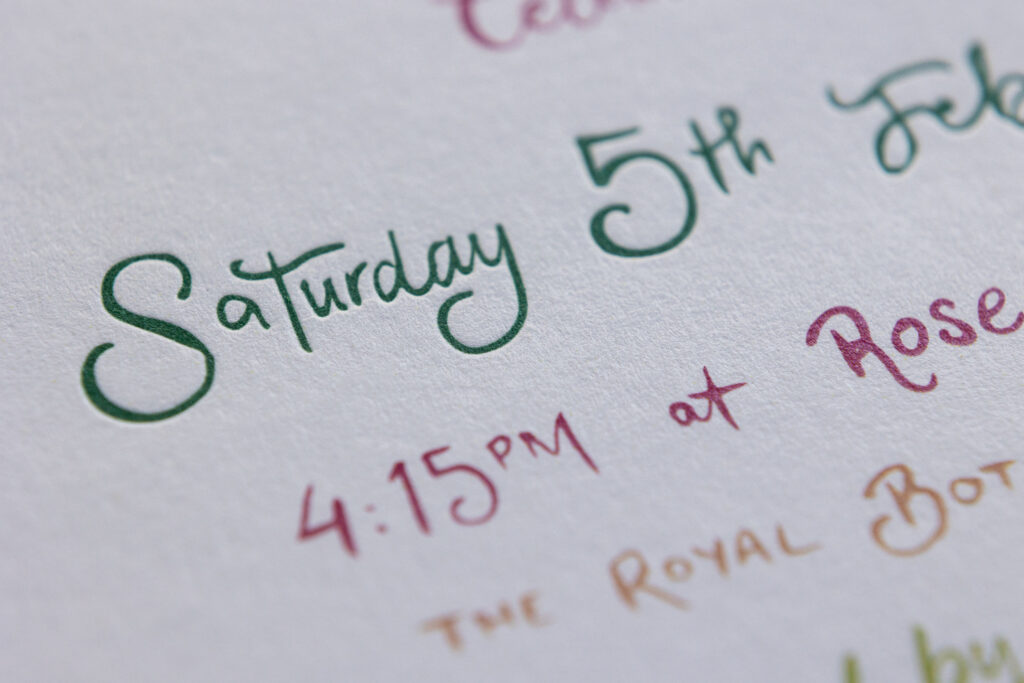 Saturday 5th Feb
4:15PM at Rose
THE ROYAL BOT
by